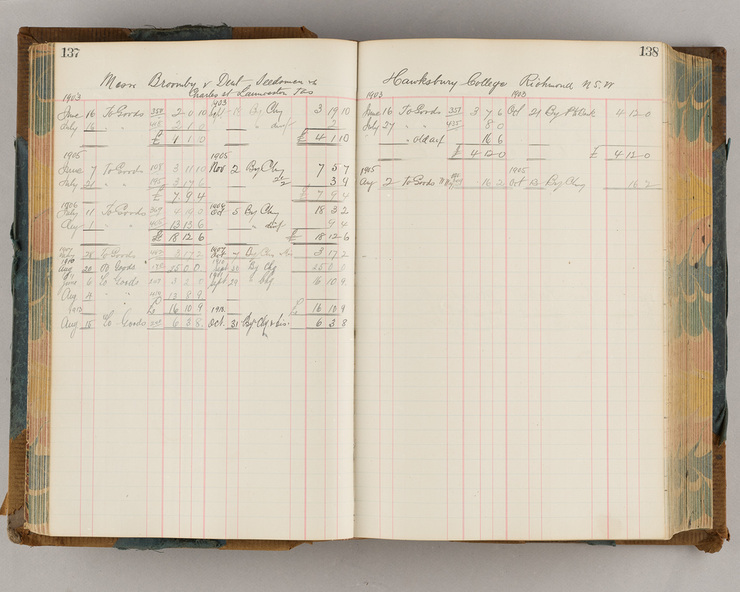 137
Messrs Broomby & Dent Seedsmen &c
Charles st Launceston Tas
1903 1903
June 16 To Goods 351 2 0 10 Sept 18 By Chq 3 19 10
July 16 " " 2 1 0 " disct 2
£ 4 1 10 £ 4 1 10
1905 1905
June 7 To Goods 105 3 11 10 Nov 2 By Chq 7 5 7
July 21 " " 3 17 6 3 9
£ 7 9 4 £ 7 9 4
1906 1906
July 11 To Goods 4 19 0 Oct 5 By Chq 18 3 2
Aug 1 " " 13 13 6 " disct 9 4
£ 18 12 6 £ 18 12 6
28 To Goods 3 17 2 By Chq 3 17 2
1910
Aug 20 To Goods 15 0 0 Sept 28 By Chq 15 0 0
June 6 To Goods 3 2 0 Sept 29 Chq 16 10 9
Aug 13 8 9
1912 £ 16 10 9 1912 £ 16 10 9
Aug 15 To Goods 6 3 8 Oct. 31 By Chq & Dis. 6 3 8
138
Hawksbury College Richmond N.S.W
1903 1903
June 16 To Goods 351 3 7 6 Oct 21 By 4 12 0
July 27 " " 435 8 0
" old a/c 16 6
£ 4 12 0 £ 4 12 0
1905 1905
Aug 2 To Goods 16 2 Oct 12 By Chq 16 2